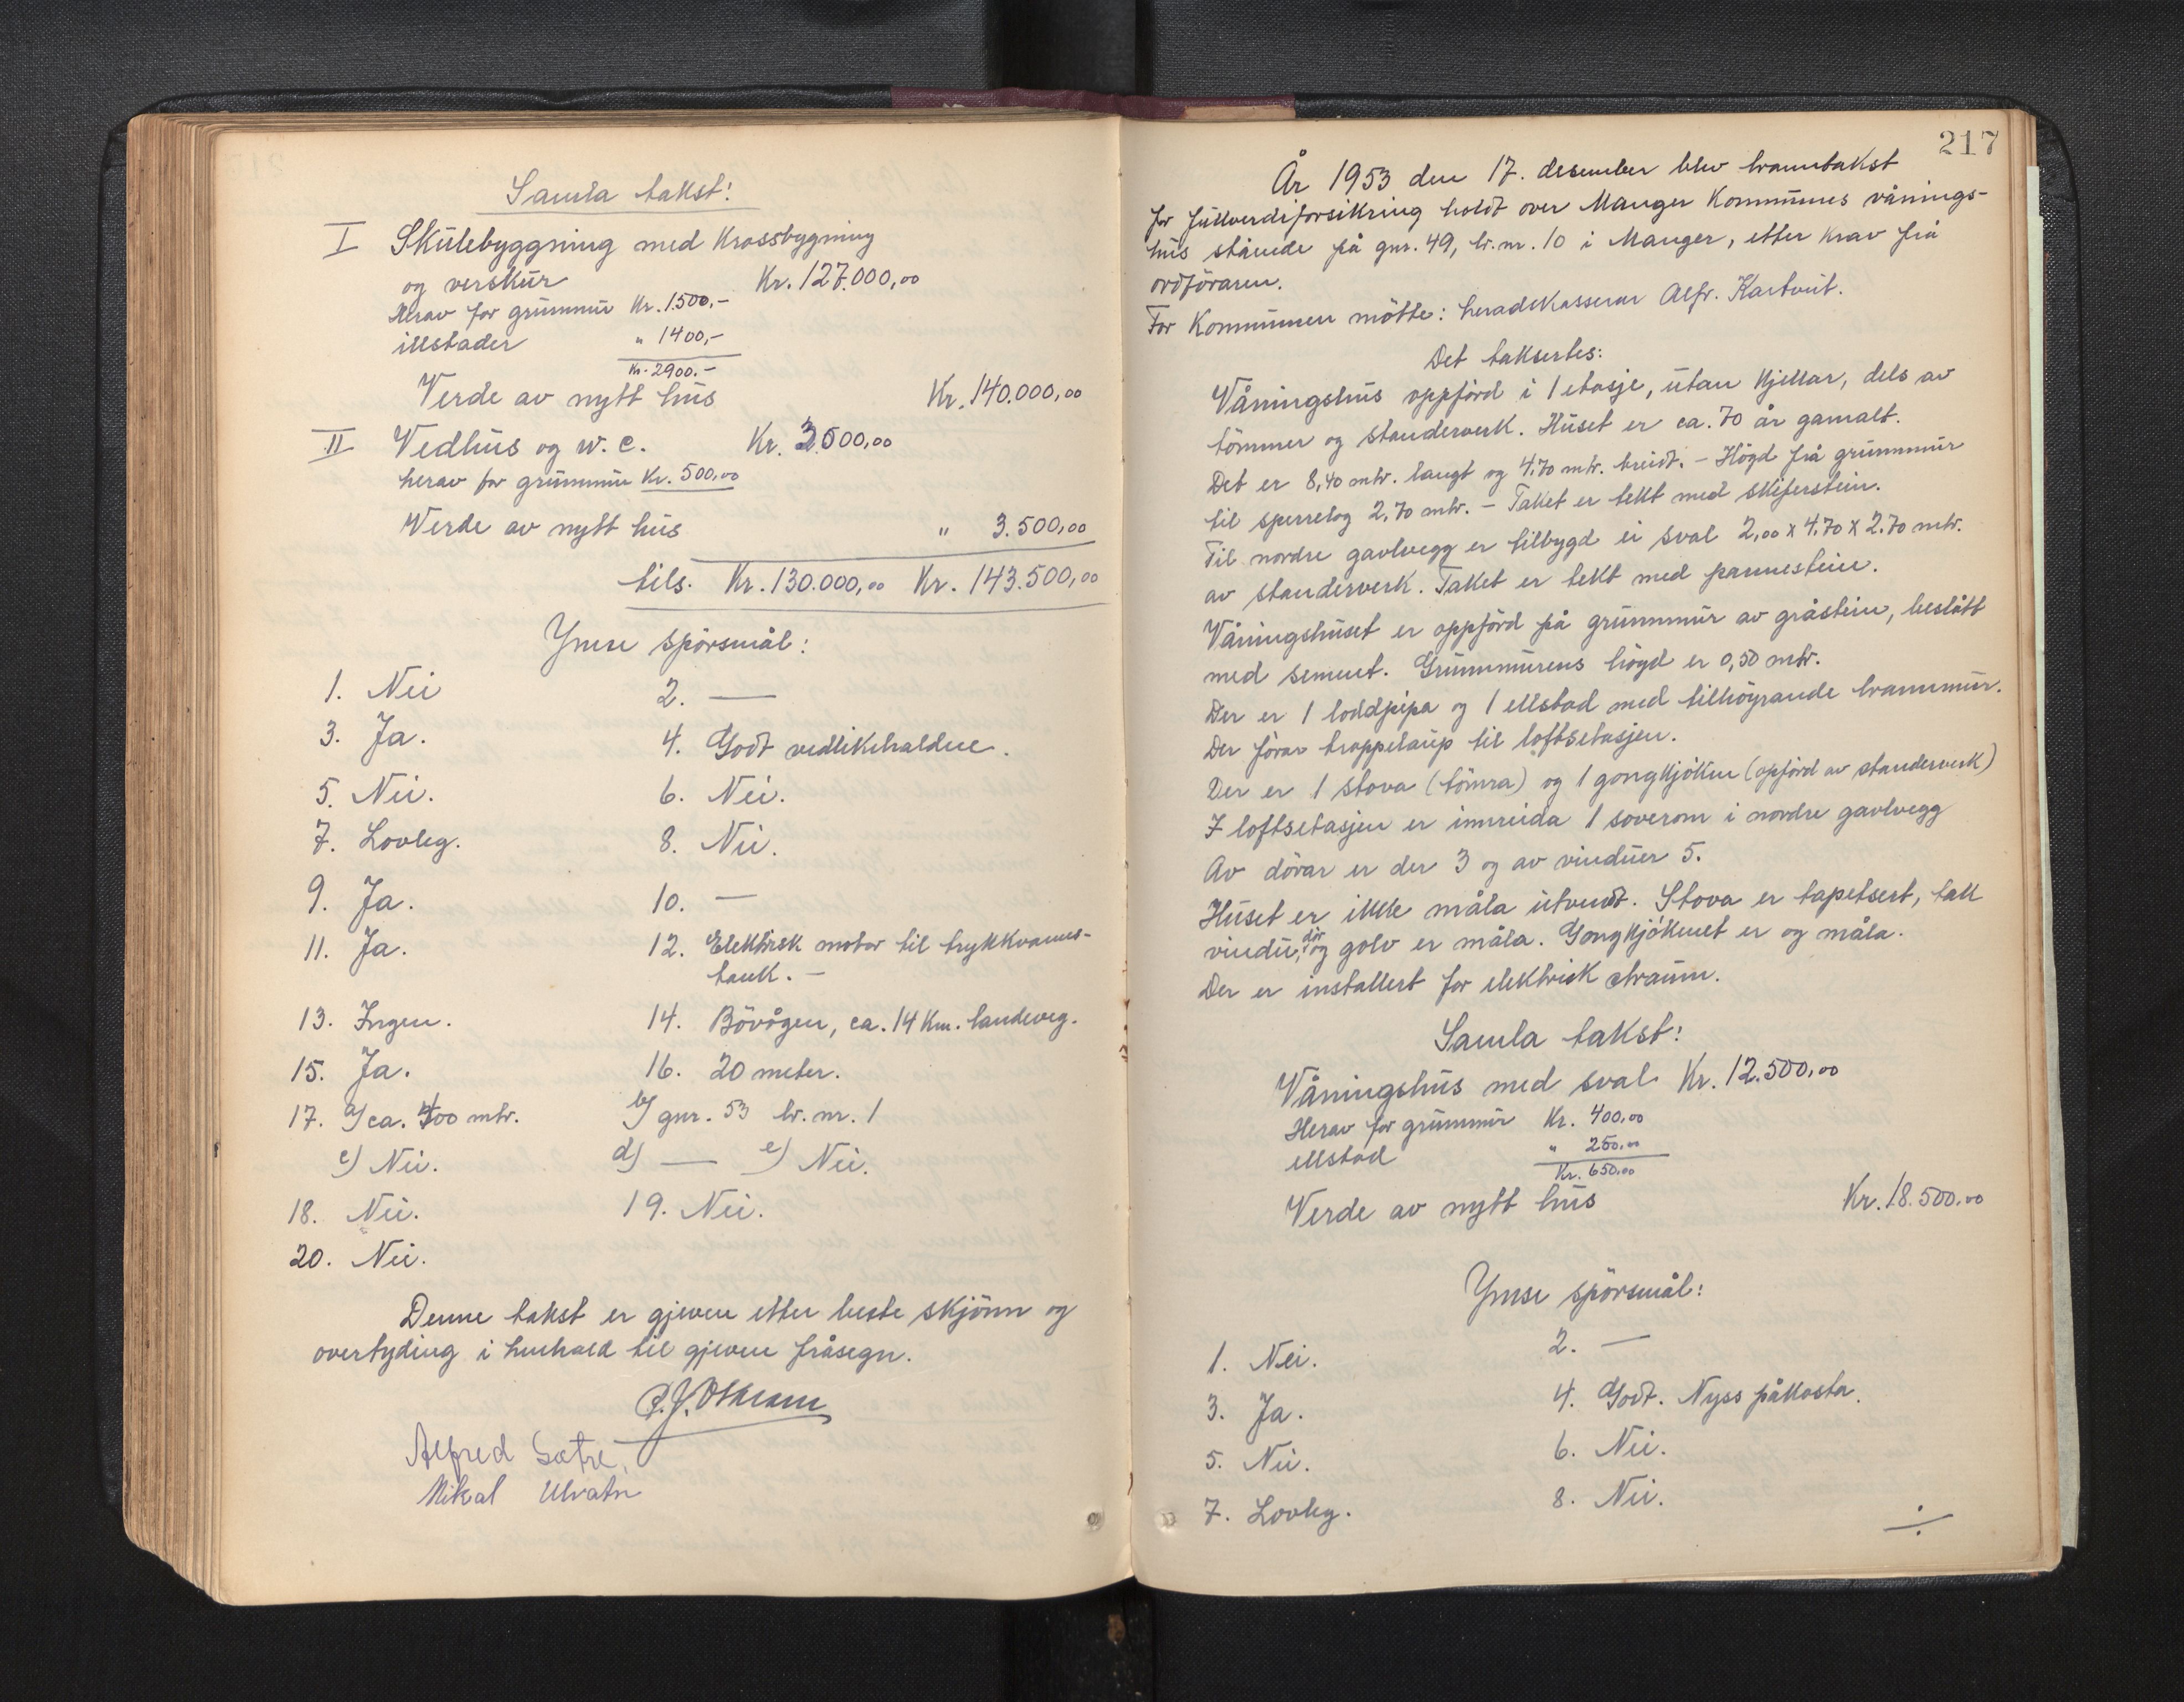 Samla takst:
I Skulebyggning med Krossbygning
og verskur Kr. 127.000,00
Herav for grunnmur Kr. 1500.-
illstader " 1400,-
Kr. 2900.-
Verde av nytt hus Kr. 140.000,00
II Vedhus og w.c. Kr. 3.000,00
herav for grunnmur Kr. 500,00
Verde av nytt hus " 3.500,00
tils. Kr. 130.000,00 Kr. 143.500,00
Ymse spörsmål:
1. Nei 2. —
3. Ja. 4. Godt vedlikehaldne.
5. Nei. 6. Nei.
7. Lovleg. 8. Nei.
9. Ja. 10. —
11. Ja. 12. Elektrisk motor til trykkvanns-
tank. —
13. Ingen. 14. Bövågen, ca. 14 Km. landeveg.
15. Ja. 16. 20 meter.
17. a) ca. 400 mtr. b) gnr. 53 br.nr. 1
c) Nei. d) — e) Nei.
18. Nei. 19. Nei.
20. Nei.
Denne takst er gjeven etter beste skjönn og
overtyding i henhald til gjeven fråsegn.
Alfred Sætre.
Mikal Ulvatn
217
År 1953 den 17. desember blev branntakst
for fullverdiforsikring holdt over Manger Kommunes vånings-
hus stående på gnr. 49, br.nr. 10 i Manger, etter krav frå
ordföraren.
For Kommunen mötte: heradskasserar Alfr. Kartveit.
Det taksertes:
Våningshus oppförd i 1 etasje, utan Kjellar, dels av
tömmer og standerverk. Huset er ca. 70 år gamalt.
Det er 8,40 mtr. langt og 4.70 mtr. breidt. - Högd frå grunnmur
til sperrelag 2,70 mtr. - Taket er tekt med skiferstein.
Til nordre gavlvegg er tilbygd ei sval 2,00 x 4.70 x 2.70 mtr.
av standerverk. Taket er tekt med pannestein.
Våningshuset er oppförd på grunnmur av gråstein, beslått
med sement. Grunnmurens högd er 0,50 mtr.
Der er 1 loddpipa og 1 ellstad med tilhöyrande brannmur.
Der förar troppelaup til loftsetasjen.
Der er 1 stova (tömra) og 1 gongkjöken (opförd av standerverk)
I loftsetasjen er innreida 1 soverom i nordre gavlvegg
Av dörar er der 3 og av vinduer 5.
Huset er ikkje måla utvendt. Stova er tapetsert, tak
vindu, dör og golv er måla. Gongkjökenet er og måla.
Der er installert for elektrisk straum.
Samla takst:
Våningshus med sval Kr. 12.500,00
Herav for grunnmur Kr. 400,00
ellstad " 250.00
Kr. 650,00
Verde av nytt hus Kr. 18.500.00
Ymse spörsmål:
1. Nei. 2. —
3. Ja. 4. Godt. Nyss påkosta.
5. Nei. 6. Nei.
7. Lovleg. 8. Nei.